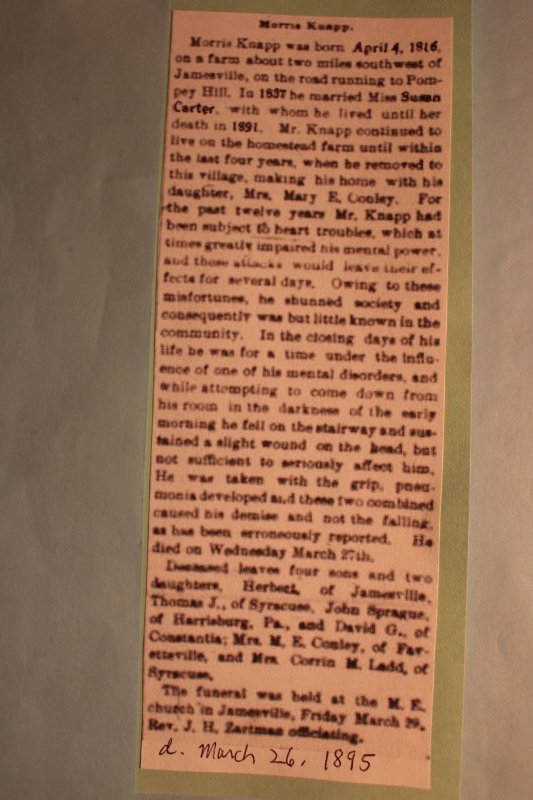 Morris Knapp.
Morris Knapp was born April 4, 1816,
on a farm about two miles southwest of
Jamesville, on the road running to Pom-
pey Hill. In 1837 he married Miss Susan
Carter, with whom he lived until her
death in 1891. Mr. Knapp continued to
live on the homestead farm until within
the last four years, when he removed to
this village, making his home with his
daughter, Mrs. Mary E. Conley. For
the past twelve years Mr. Knapp had
been subject to heart troubles, which at
times greatly impaired his mental power,
and these attacks would leave their ef-
fects for several days. Owing to these
misfortunes, he shunned society and
consequently was but little known in the
community. In the closing days of his
life he was for a time under the influ-
ence of one of his mental disorders, and
while attempting to come down from
his room in the darkness of the early
morning he fell on the stairway and sus-
tained a slight wound on the head, but
not sufficient to seriously affect him.
He was taken with the grip, pneu-
monia developed and these two combined
caused his demise and not the falling,
as has been erroneously reported. He
died on Wednesday March 27th.
Deceased leaves four sons and two
daughters, Herbert, of Jamesville,
Thomas J., of Syracuse, John Sprague,
of Harrisburg, Pa., and David G., of
Constantia; Mrs. M. E. Conley, of Fay-
etteville, and Mrs. Corrin M. Ladd, of
Syracuse.
The funeral was held at the M. E.
church in Jamesville, Friday March 29,
Rev. J. H. Zartman officiating.
d. March 26, 1895